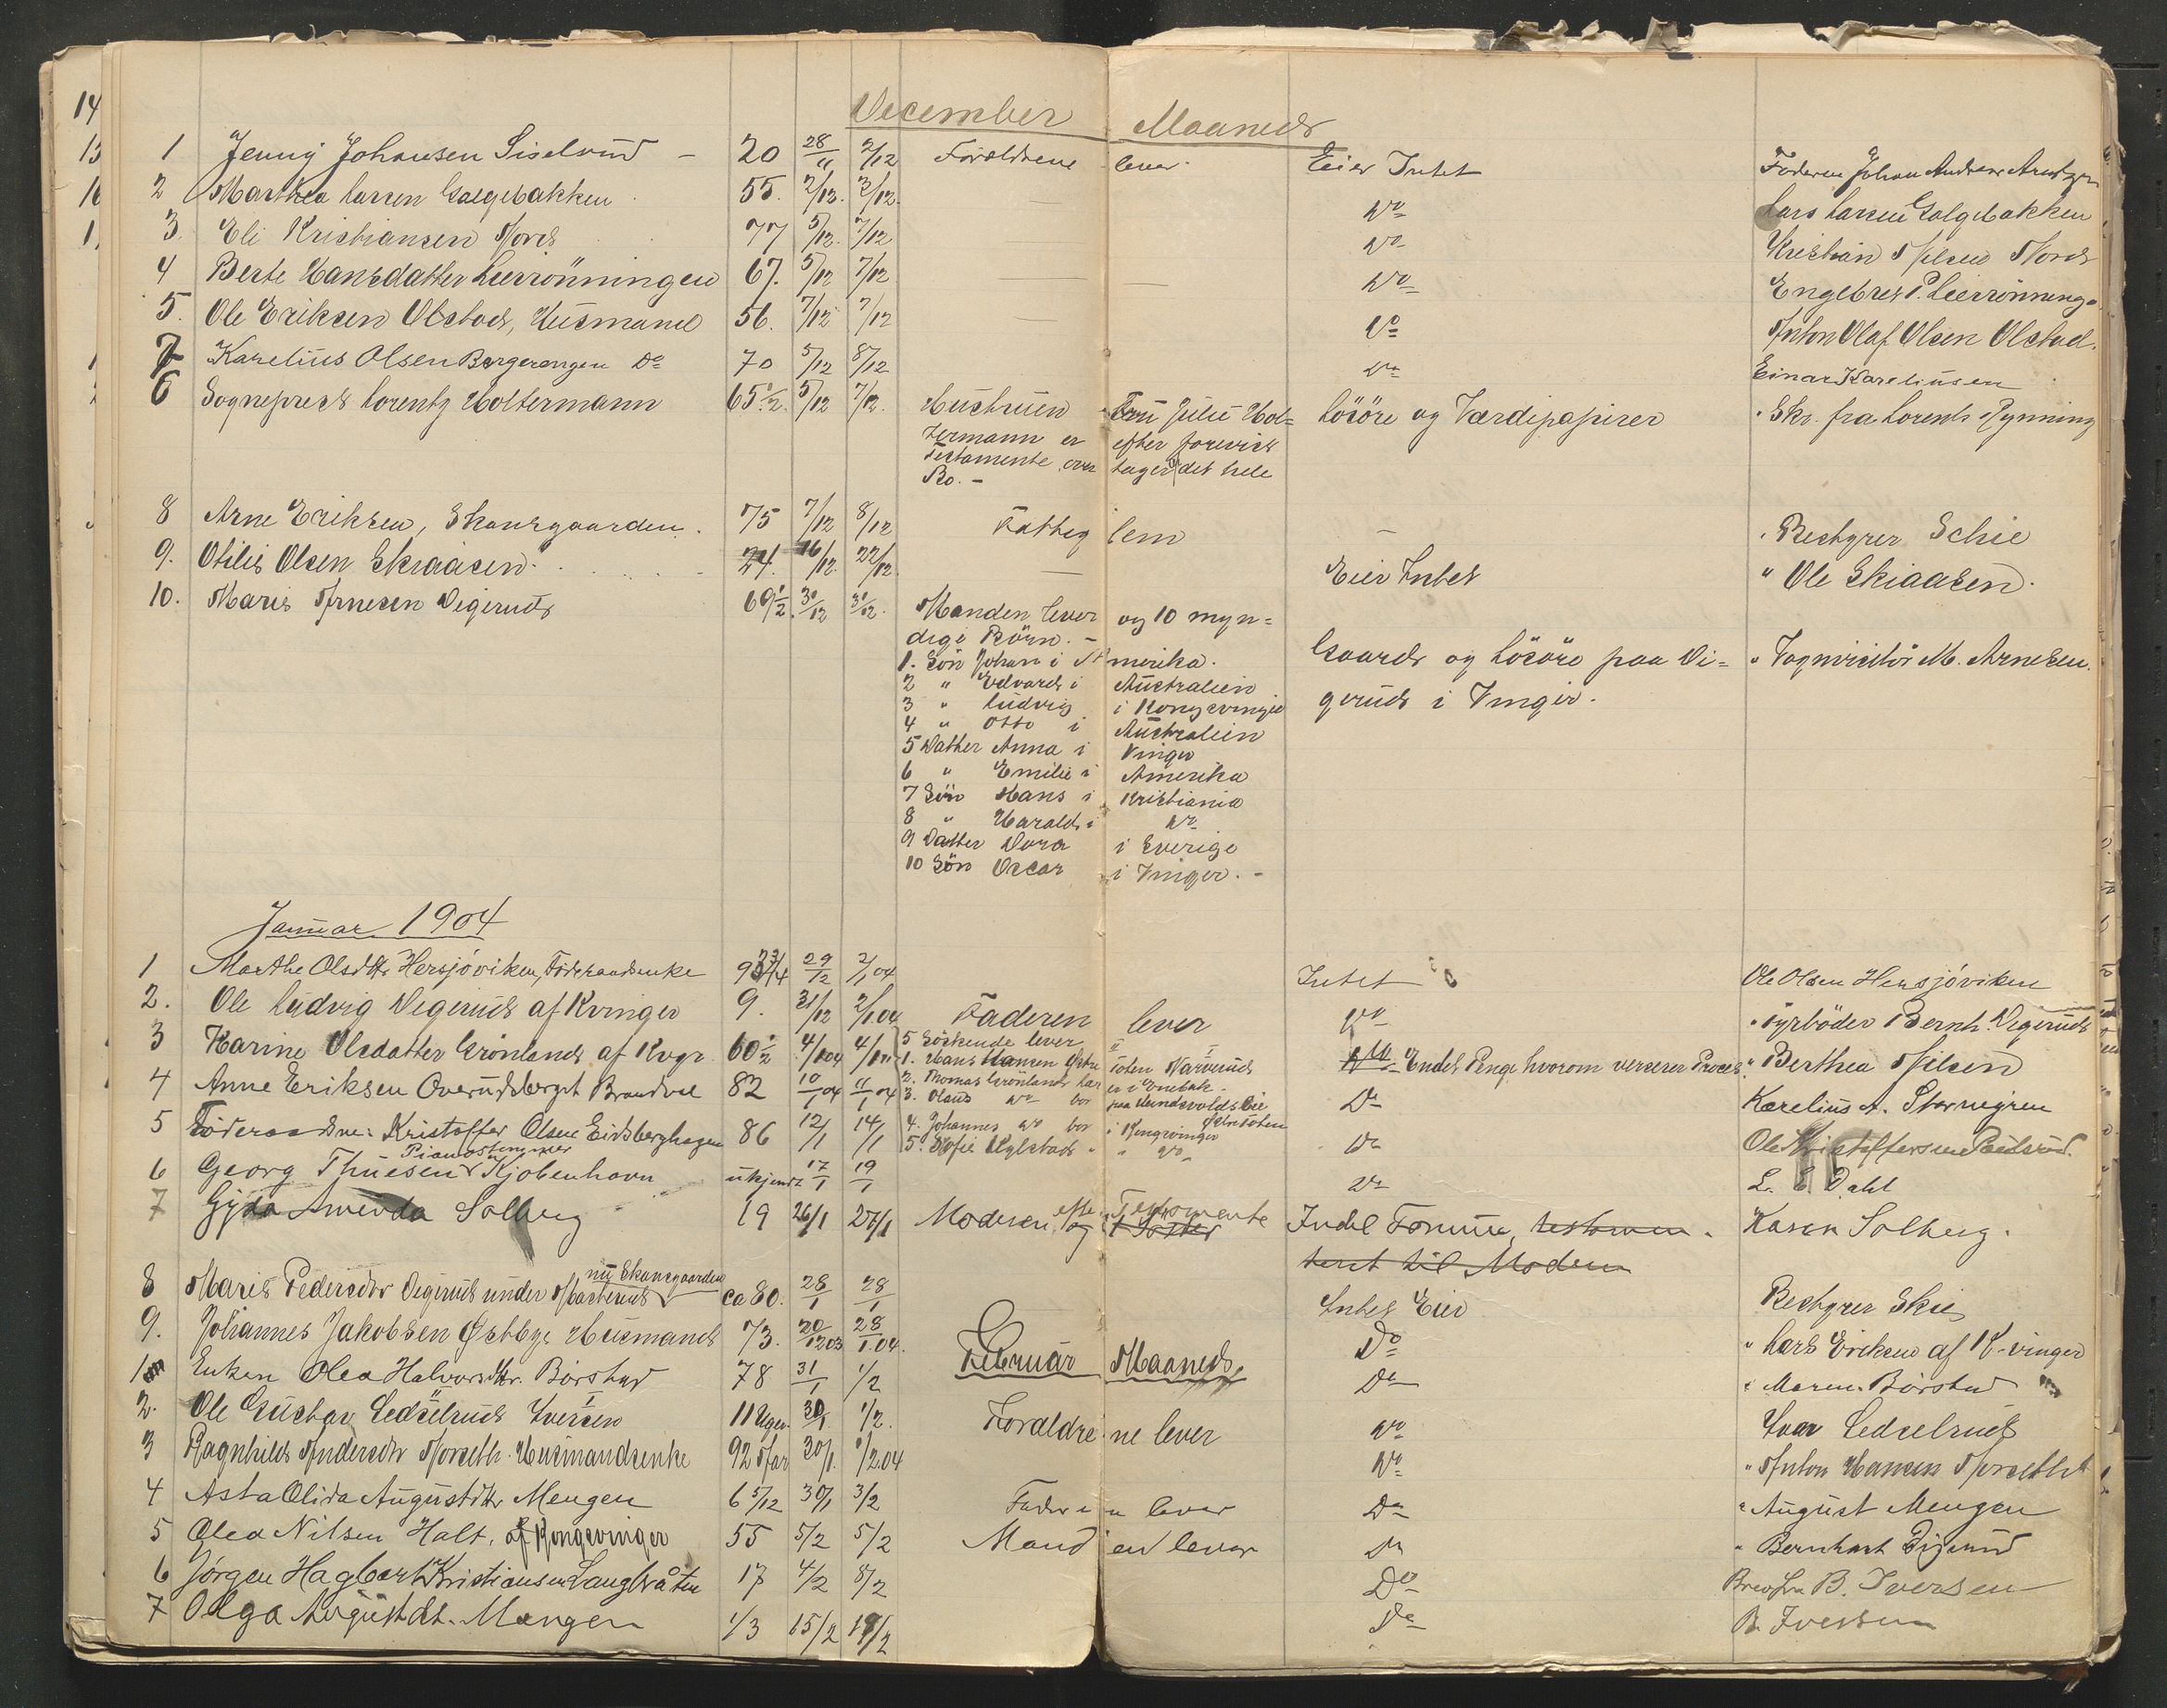 December Maaned
1 Jenny Johansen Siselrud - 20 28/11 2/12 Forældrene lever. Eier Intet Faderen Johan Andreas
2 Marthea Larsen Galgebakken 55. 2/12. 2/12. Do Lars Larsen Galgebakken
3. Eli Kristiansen Nord 77 5/12. 7/12 Do Kristian Nilsen Nord
4 Berte Hansdatter Lierrönningen 67. 5/12 7/12 Do Engebret P. Lierrönning
5. Ole Eriksen Olstad, Husmand 56. 7/12 7/12 Do Anton Olaf Olsen Olstad.
7 Karelius Olsen Bergerengen Do 70 5/12 8/12 Do Einar Kareliusen
6 Sogneprest Lorentz Holtermann 65 1/2. 5/12 7/12. Hustruen Fru Julie Hol= Lösöre og Værdipapirer Skr. fra Lorentz Rynning
termann er efter forevist
Testamente over tager det hele
Bo. -
8 Arne Eriksen, Skansgaarden. 75 7/12 8/12 Fattig lem - Bestyrer Schie
9. Otilie Olsen Skraasen 24. 16/12. 22/12. Eier Intet " Ole Skiaasen.
10. Marie Arnesen Vigerud 69 1/2. 30/12 31/12. Manden lever og 10 myn=
dige Börn. -
1. Sön Johan i Amerika. Gaard og Lösöre paa Vi= " Vognvisitör M. Arnesen.
2 " Edvard i Australien gerud i Vinger.
3 " Ludvig i Kongsvinger
4 " Otto i Australien
5 Datter Anna i Vinger
6 " Emilie i Amerika
7 Sön Hans i Kristiania
8 " Harald i Do
9 Datter Dora i Sverige
10 Sön Oscar i Vinger. -
Januar 1904
1 Marthe Olsdtr Hersjöviken, Föderaadsenke 29/12 2/1 04 Intet Ole Olsen Hersjöviken
2. Ole Ludvig Vegerud af Kvinger 9. 31/12 2/1.04 Faderen lever Do " Fyrböder Bernh. Vegerud
3 Karine Olsdatter Grönland af Kvgr. 60 1/2 4/1 04 4/1 04 5 Söskende lever Endel Penge hvorom verserer Proces. " Berthea Nilsen
1. Hans Hansen Östre Toten Narverud
4 Anne Eriksen Overudsberget Brandval 82 10/1 04 11/1 04 2. Thomas Grönland har er i Enebak. Do Karelius A. Stornegren
3. Olaus Do bor paa Hundsvolds Eie Östre Toten
5 Föderaadsm. Kristoffer Olsen Eidsberghagen 86 12/1 14/1 4. Johannes Do bor i Kongsvinger Do Ole Kristoffersen
5. Sofie Kylstad " " Do
6 Georg Thuesen Pianostemmer Kjøbenhavn ukjendt 17/1 19/1 Do L. E. Dahl
7 Gyda Amanda Solberg 19 26/1 27/1 Moderen, efter Testamente og 1 Søster Indel Formue, testamen- Karen Solberg.
teret til Moderen
8 Marie Pedersdtr Vegerud under Masterud nu Skansgaarden ca 80. 28/1 28/1 Intet Eier Bestyrer Skie
9. Johannes Jakobsen Østbye Husmand 73. 20/12 03 28/1.04. Do " Lars Eriksen af K-vinger
Februar Maaned,
1 Enken Olea Halvorsdtr. Börstad 78 31/1 1/2 Do " Maren Börstad
2. Ole Gustav Sedselrud Iversen 11 Uger. 30/1 1/2. Forældre ne lever Do Ivar Sedselrud
3 Ragnhild Andersdtr Norseth. Husmandsenke 92 Aar 30/1. 1/2.04 Do " Anton Hansen Norseth
4 Asta Olida Augustdtr Mengen 6 5/12 30/1 3/2 Faderen lever Do " August Mengen
5 Olea Nilsen Holt, af Kongsvinger 55 5/2 5/2 Mand en lever Do " Bernhart
6 Jörgen Hagbart Kristiansen Langbråten 17 4/2 8/2 Do Brev fra B. Iversen
7 Olga Augustdt. Mangen 1/3 15/2 19/2 Do B. Iversen